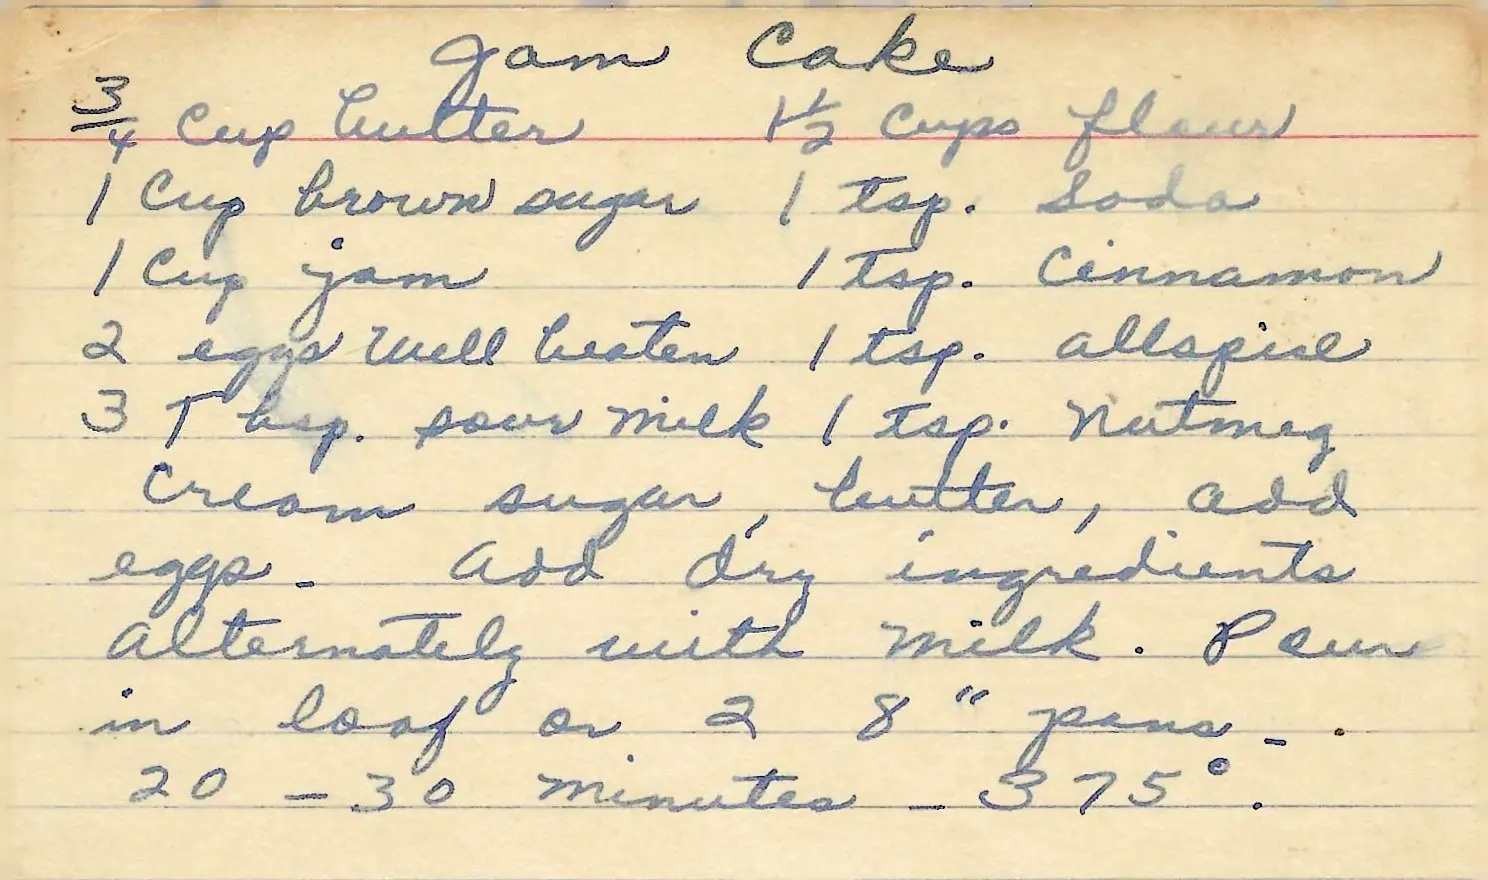 Jam Cake
3/4 Cup butter 1 1/2 Cups flour
1 Cup brown sugar 1 tsp. Soda
1 Cup jam 1 tsp. Cinnamon
2 eggs Well beaten 1 tsp. allspise
3 Tbsp. sour Milk 1 tsp. Nutmeg
Cream sugar, butter, add
eggs - add dry ingredients
alternately with milk. Pour
in loaf or 2 8" pans - .
20 - 30 minutes - 375°.